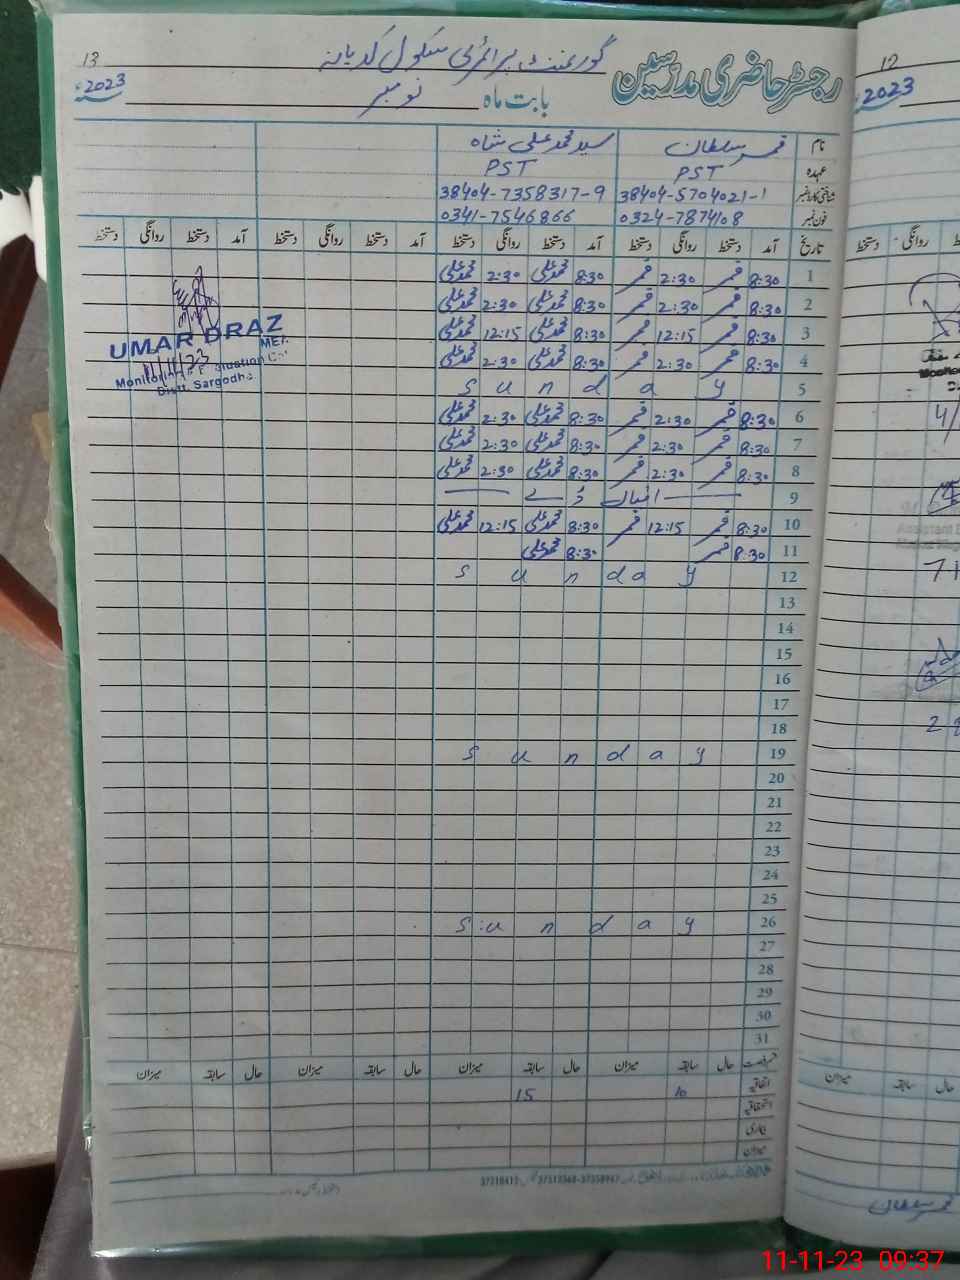 13
گورنمنٹ پرائمری سکول کدیانہ
رجسٹر حاضری مدرسین
2023ء
بابت ماہ نومبر
نام قمر سلطان سید محمد علی شاہ
عہدہ PST PST
شناختی کارڈ نمبر 38404-5704021-1 38404-7358317-9
فون نمبر 0324-7874108 0341-7546866
تاریخ آمد دستخط روانگی دستخط آمد دستخط روانگی دستخط آمد دستخط روانگی دستخط آمد دستخط روانگی دستخط
1 8:30 قمر 2:30 قمر 8:30 محمد علی 2:30 محمد علی
2 8:30 قمر 2:30 قمر 8:30 محمد علی 2:30 محمد علی
3 8:30 قمر 12:15 قمر 8:30 محمد علی 12:15 محمد علی
4 8:30 قمر 2:30 قمر 8:30 محمد علی 2:30 محمد علی
5 Sunday
6 8:30 قمر 2:30 قمر 8:30 محمد علی 2:30 محمد علی
7 8:30 قمر 2:30 قمر 8:30 محمد علی 2:30 محمد علی
8 8:30 قمر 2:30 قمر 8:30 محمد علی 2:30 محمد علی
9 اقبال ڈے
10 8:30 قمر 12:15 قمر 8:30 محمد علی 12:15 محمد علی
11 8:30 قمر 8:30 محمد علی
12 Sunday
13
14
15
16
17
18
19 Sunday
20
21
22
23
24
25
26 Sunday
27
28
29
30
31
UMAR DRAZ
Distt. Sargodha
رخصت حال سابقہ میزان حال سابقہ میزان حال سابقہ میزان حال سابقہ میزان
اتفاقیہ 10 15
استحقاقیہ
بیماری
میزان
12
2023ء
روانگی دستخط
حال سابقہ میزان
قمر سلطان
11-11-23 09:37